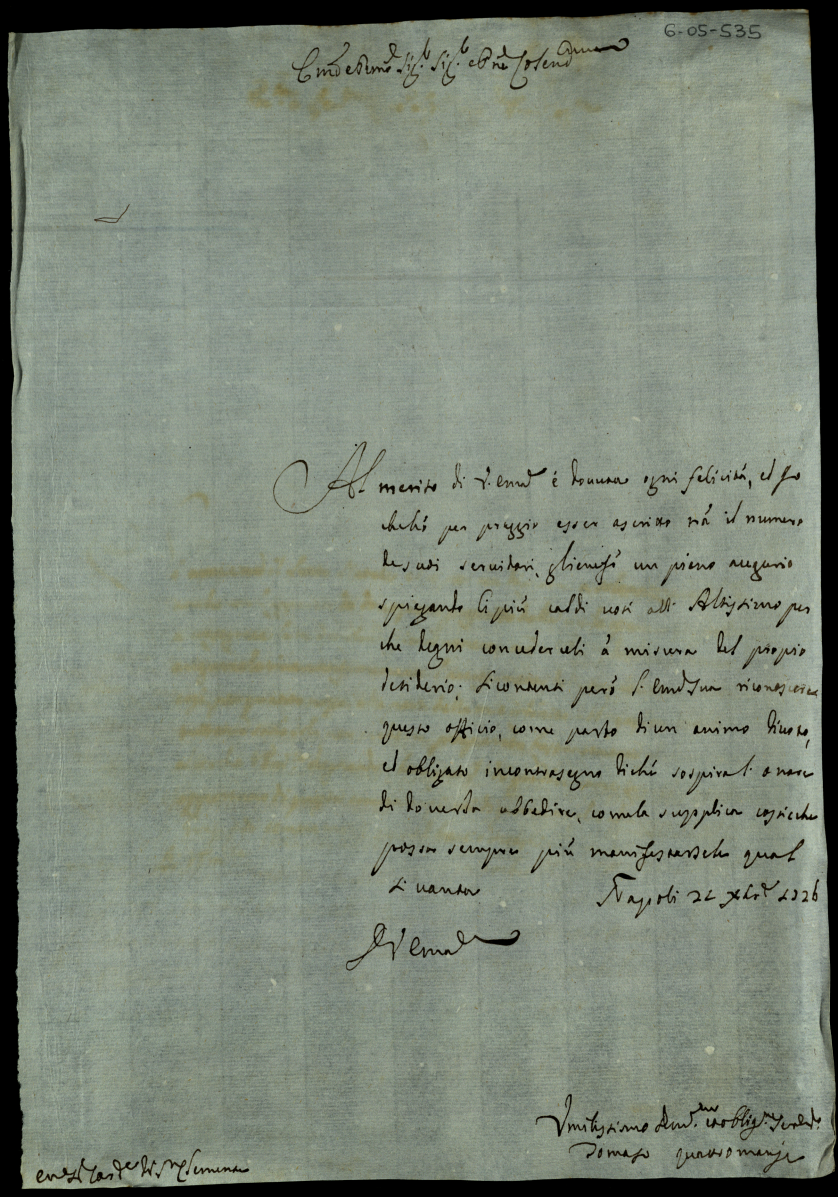 6-05-535
Em̃o e Rmo Sig.r Sig.r e Pne Colend.mo
Al merito di V. Em.a è dovuta ogni felicità, ed Io
che hò per preggio esser ascritto trà il numero
de suoi servidori, un pieno augurio
spiegando li più caldi voti all' Altissimo per
che degni concederceli à misura del propio
desiderio; si contenti però l' Em.a Sua riconoscere
questo officio, come parto di un animo divoto,
ed obligato in contrasegno di chi sospira l' onore
di doverla obbedire, come la supplico
possa sempre più manifestarsele qual
si vanta Napoli 21 Xbre 1726
D V Em.a
Umilissimo Div.mo ed oblig.mo Serv.re
Tomaso Quattromani
Em.o Sig.r Card.le